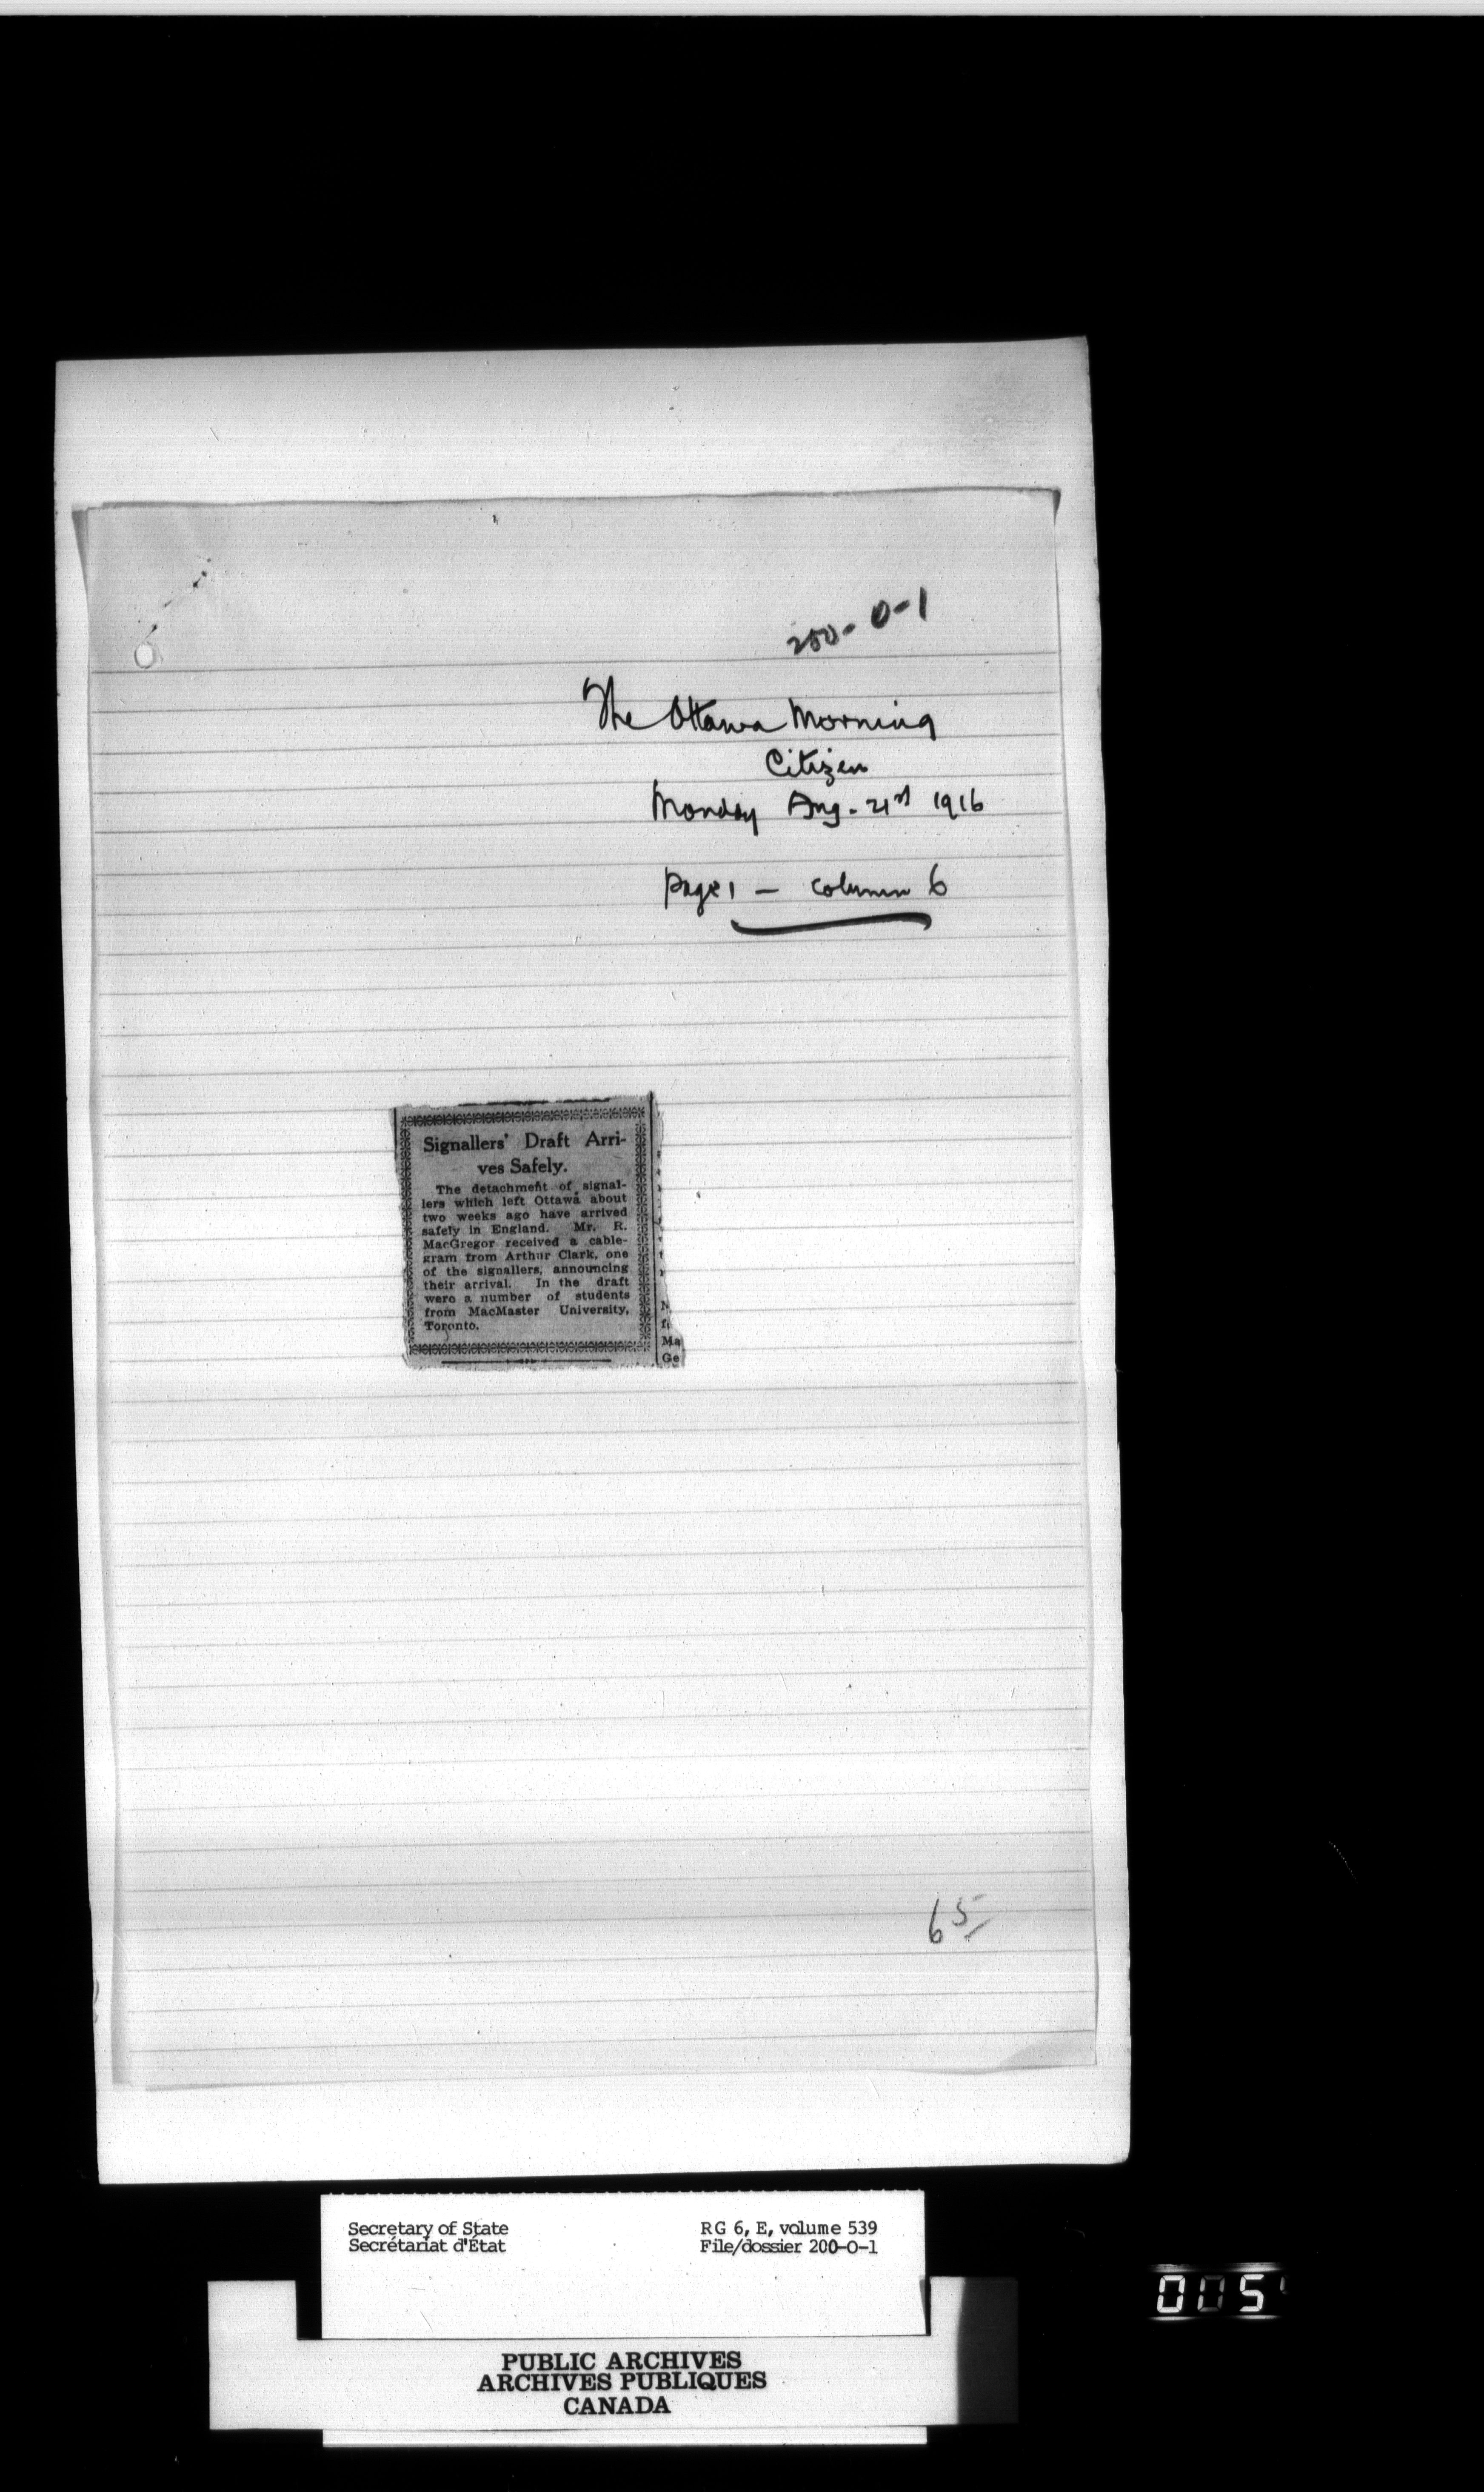 200-0-1
The Ottawa Morning
Citizen
Monday Aug. 21st 1916
Page 1 — column 6
Signallers' Draft Arri-
ves Safely.
The detachment of signal-
lers which left Ottawa about
two weeks ago have arrived
safely in England. Mr. R.
MacGregor received a cable-
gram from Arthur Clark, one
of the signallers, announcing
their arrival. In the draft
were a number of students
from MacMaster University,
Toronto.
N
f
Ma
Ge
65
Secretary of State
Secrétariat d'État
RG 6, E, volume 539
File/dossier 200-0-1
PUBLIC ARCHIVES
ARCHIVES PUBLIQUES
CANADA
005